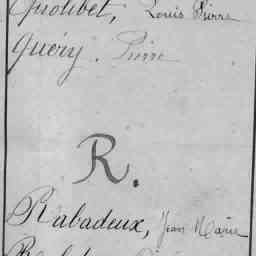 Quolibet, Louis Pierre
Quéry. Pierre
R.
Rabadeux, Jean Marie